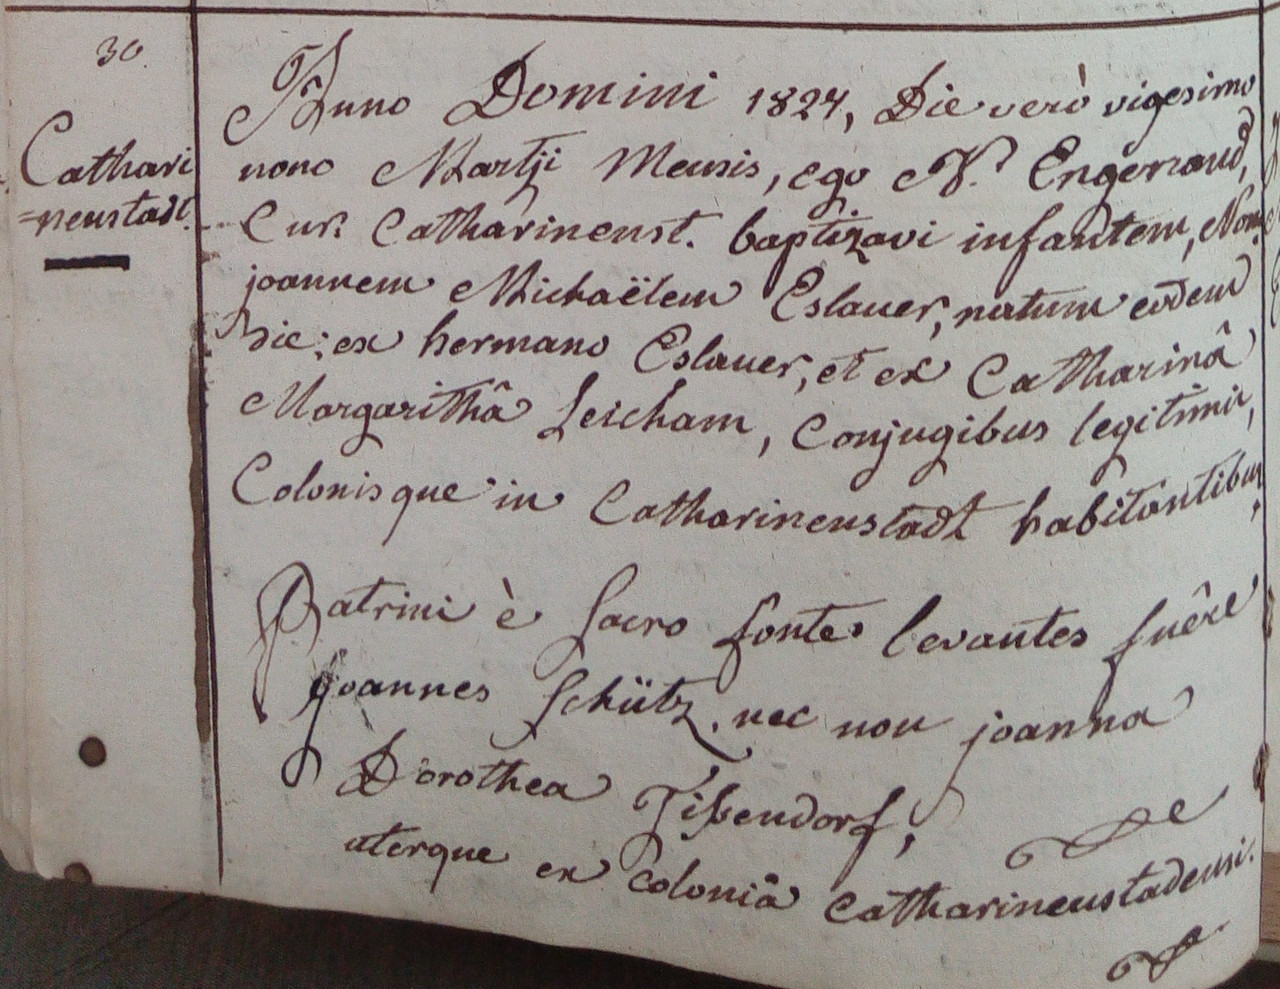 30.
Cathari
=neustadt.
Anno Domini 1824, Die verò vigesimo
nono Martji Mensis, ego N. Engerrand,
Cur: Catharinenst. baptizavi infantem, Nom:
joannem Michaëlem Eslauer, natum eodem
die; ex hermano Eslauer, et ex Catharinâ
Margarithâ Leicham, Conjugibus legitimis,
Colonisque in Catharinenstadt habitantibus,
Patrini è sacro fonte levantes fuêre
joannes Schütz, nec non joanna
Dorothea Tißendorf,
uterque ex coloniâ Catharinenstadensi.